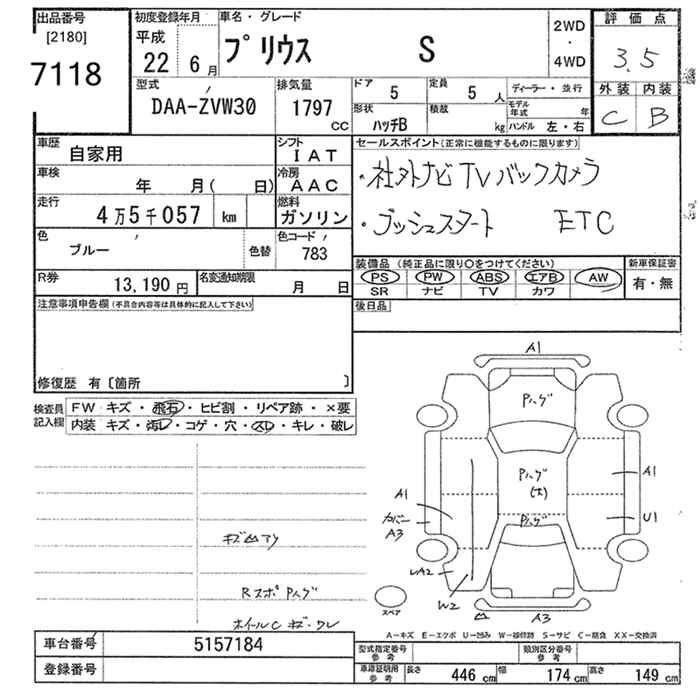 出品番号
[2180]
7118
初度登録年月
平成
22 6月
車名・グレード
プリウス S
2WD
・
4WD
評価点
3.5
外装 内装
C B
型式
DAA-ZVW30
排気量
1797
CC
ドア
5
定員
5人
形状
ハッチB
積載
kg
ディーラー・並行
モデル年式 年
ハンドル 左・右
車歴
自家用
シフト
IAT
車検
年 月( 日)
冷房
AAC
走行
4万5千057 km
燃料
ガソリン
色
ブルー
色替
色コード
783
R券
13,190円
名変通知期限
月 日
セールスポイント(正常に機能するものに限ります)
・社外ナビ TV バックカメラ
・プッシュスタート ETC
装備品 (純正品に限り○をつけてください)
PS PW ABS エアB AW
SR ナビ TV カワ
新車保証書
有・無
後日品
注意事項申告欄(不具合内容等は具体的に記入して下さい)
修復歴 有〔箇所 〕
検査員記入欄
FW キズ・飛石・ヒビ割・リペア跡・×要
内装 キズ・汚レ・コゲ・穴・スレ・キレ・破レ
A1
Pハゲ
Pハゲ
(大)
A1
A1
Pハゲ
U1
カバー
A3
A2
W2
A3
スペア
Rスポ Pハゲ
ホイールC キズ・ワレ
A-キズ E-エクボ U-凹み W-補修跡 S-サビ C-腐食 XX-交換済
車台番号
5157184
登録番号
型式指定番号
参考
類別区分番号
参考
車庫証明用
参考
長さ 446 cm 幅 174 cm 高さ 149 cm